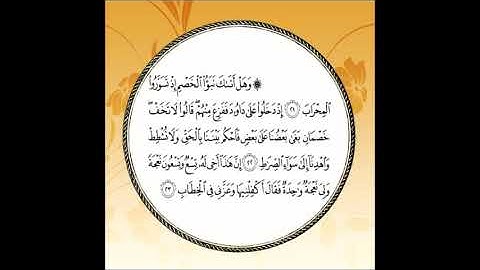 ۞ وَهَلْ أَتَىٰكَ نَبَؤُا۟ ٱلْخَصْمِ إِذْ تَسَوَّرُوا۟
ٱلْمِحْرَابَ ٢١ إِذْ دَخَلُوا۟ عَلَىٰ دَاوُۥدَ فَفَزِعَ مِنْهُمْ ۖ قَالُوا۟ لَا تَخَفْ ۖ
خَصْمَانِ بَغَىٰ بَعْضُنَا عَلَىٰ بَعْضٍ فَٱحْكُم بَيْنَنَا بِٱلْحَقِّ وَلَا تُشْطِطْ
وَٱهْدِنَآ إِلَىٰ سَوَآءِ ٱلصِّرَٰطِ ٢٢ إِنَّ هَٰذَآ أَخِى لَهُۥ تِسْعٌ وَتِسْعُونَ نَعْجَةً
وَلِىَ نَعْجَةٌ وَٰحِدَةٌ فَقَالَ أَكْفِلْنِيهَا وَعَزَّنِى فِى ٱلْخِطَابِ ٢٣